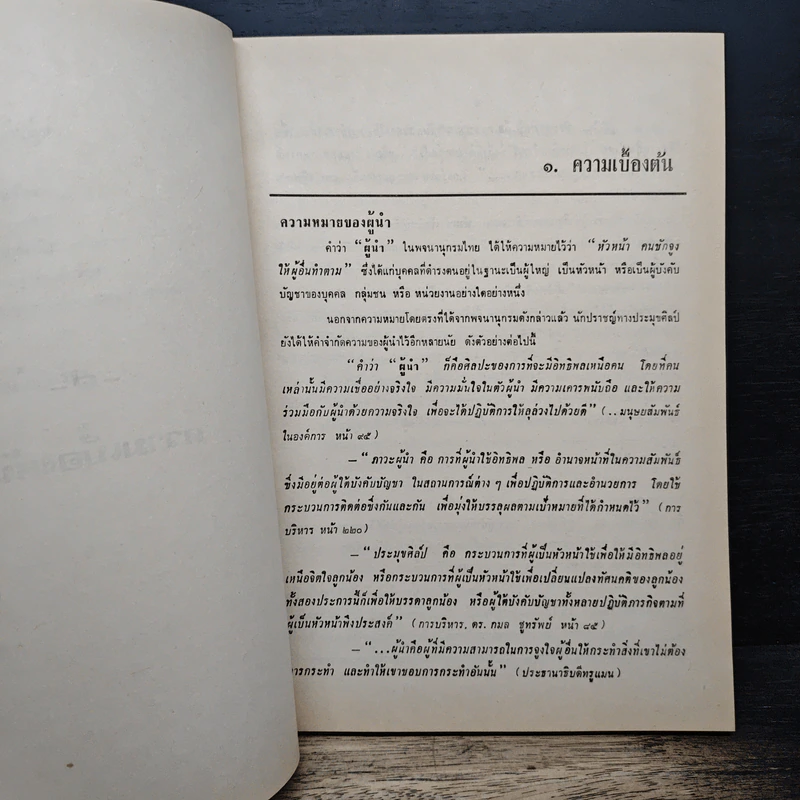 ๑. ความเบื้องต้น
ความหมายของผู้นำ
คำว่า “ผู้นำ” ในพจนานุกรมไทย ได้ให้ความหมายไว้ว่า “หัวหน้า คนชักจูง
ให้ผู้อื่นทำตาม” ซึ่งได้แก่บุคคลที่ดำรงตนอยู่ในฐานะเป็นผู้ใหญ่ เป็นหัวหน้า หรือเป็นผู้บังคับ
บัญชาของบุคคล กลุ่มชน หรือ หน่วยงานอย่างใดอย่างหนึ่ง
นอกจากความหมายโดยตรงที่ได้จากพจนานุกรมดังกล่าวแล้ว นักปราชญ์ทางประมุขศิลป์
ยังได้ให้คำจำกัดความของผู้นำไว้อีกหลายนัย ดังตัวอย่างต่อไปนี้
“คำว่า “ผู้นำ” ก็คือศิลปะของการที่จะมีอิทธิพลเหนือคน โดยที่คน
เหล่านั้นมีความเชื่ออย่างจริงใจ มีความมั่นใจในตัวผู้นำ มีความเคารพนับถือ และให้ความ
ร่วมมือกับผู้นำด้วยความจริงใจ เพื่อจะได้ปฏิบัติการให้ลุล่วงไปด้วยดี” (..มนุษยสัมพันธ์
ในองค์การ หน้า ๙๕)
—“ภาวะผู้นำ คือ การที่ผู้นำใช้อิทธิพล หรือ อำนาจหน้าที่ในความสัมพันธ์
ซึ่งมีอยู่ต่อผู้ใต้บังคับบัญชา ในสถานการณ์ต่าง ๆ เพื่อปฏิบัติการและอำนวยการ โดยใช้
กระบวนการติดต่อซึ่งกันและกัน เพื่อมุ่งให้บรรลุผลตามเป้าหมายที่ได้กำหนดไว้” (การ
บริหาร หน้า ๒๒๐)
—“ประมุขศิลป์ คือ กระบวนการที่ผู้เป็นหัวหน้าใช้เพื่อให้มีอิทธิพลอยู่
เหนือจิตใจลูกน้อง หรือกระบวนการที่ผู้เป็นหัวหน้าใช้เพื่อเปลี่ยนแปลงทัศนคติของลูกน้อง
ทั้งสองประการนี้ก็เพื่อให้บรรดาลูกน้อง หรือผู้ใต้บังคับบัญชาทั้งหลายปฏิบัติภารกิจตามที่
ผู้เป็นหัวหน้าพึงประสงค์” (การบริหาร, ดร. กมล ชูทรัพย์ หน้า ๔๕)
—“...ผู้นำคือผู้ที่มีความสามารถในการจูงใจผู้อื่นให้กระทำสิ่งที่เขาไม่ต้อง
การกระทำ และทำให้เขาชอบการกระทำอันนั้น” (ประธานาธิบดีทรูแมน)